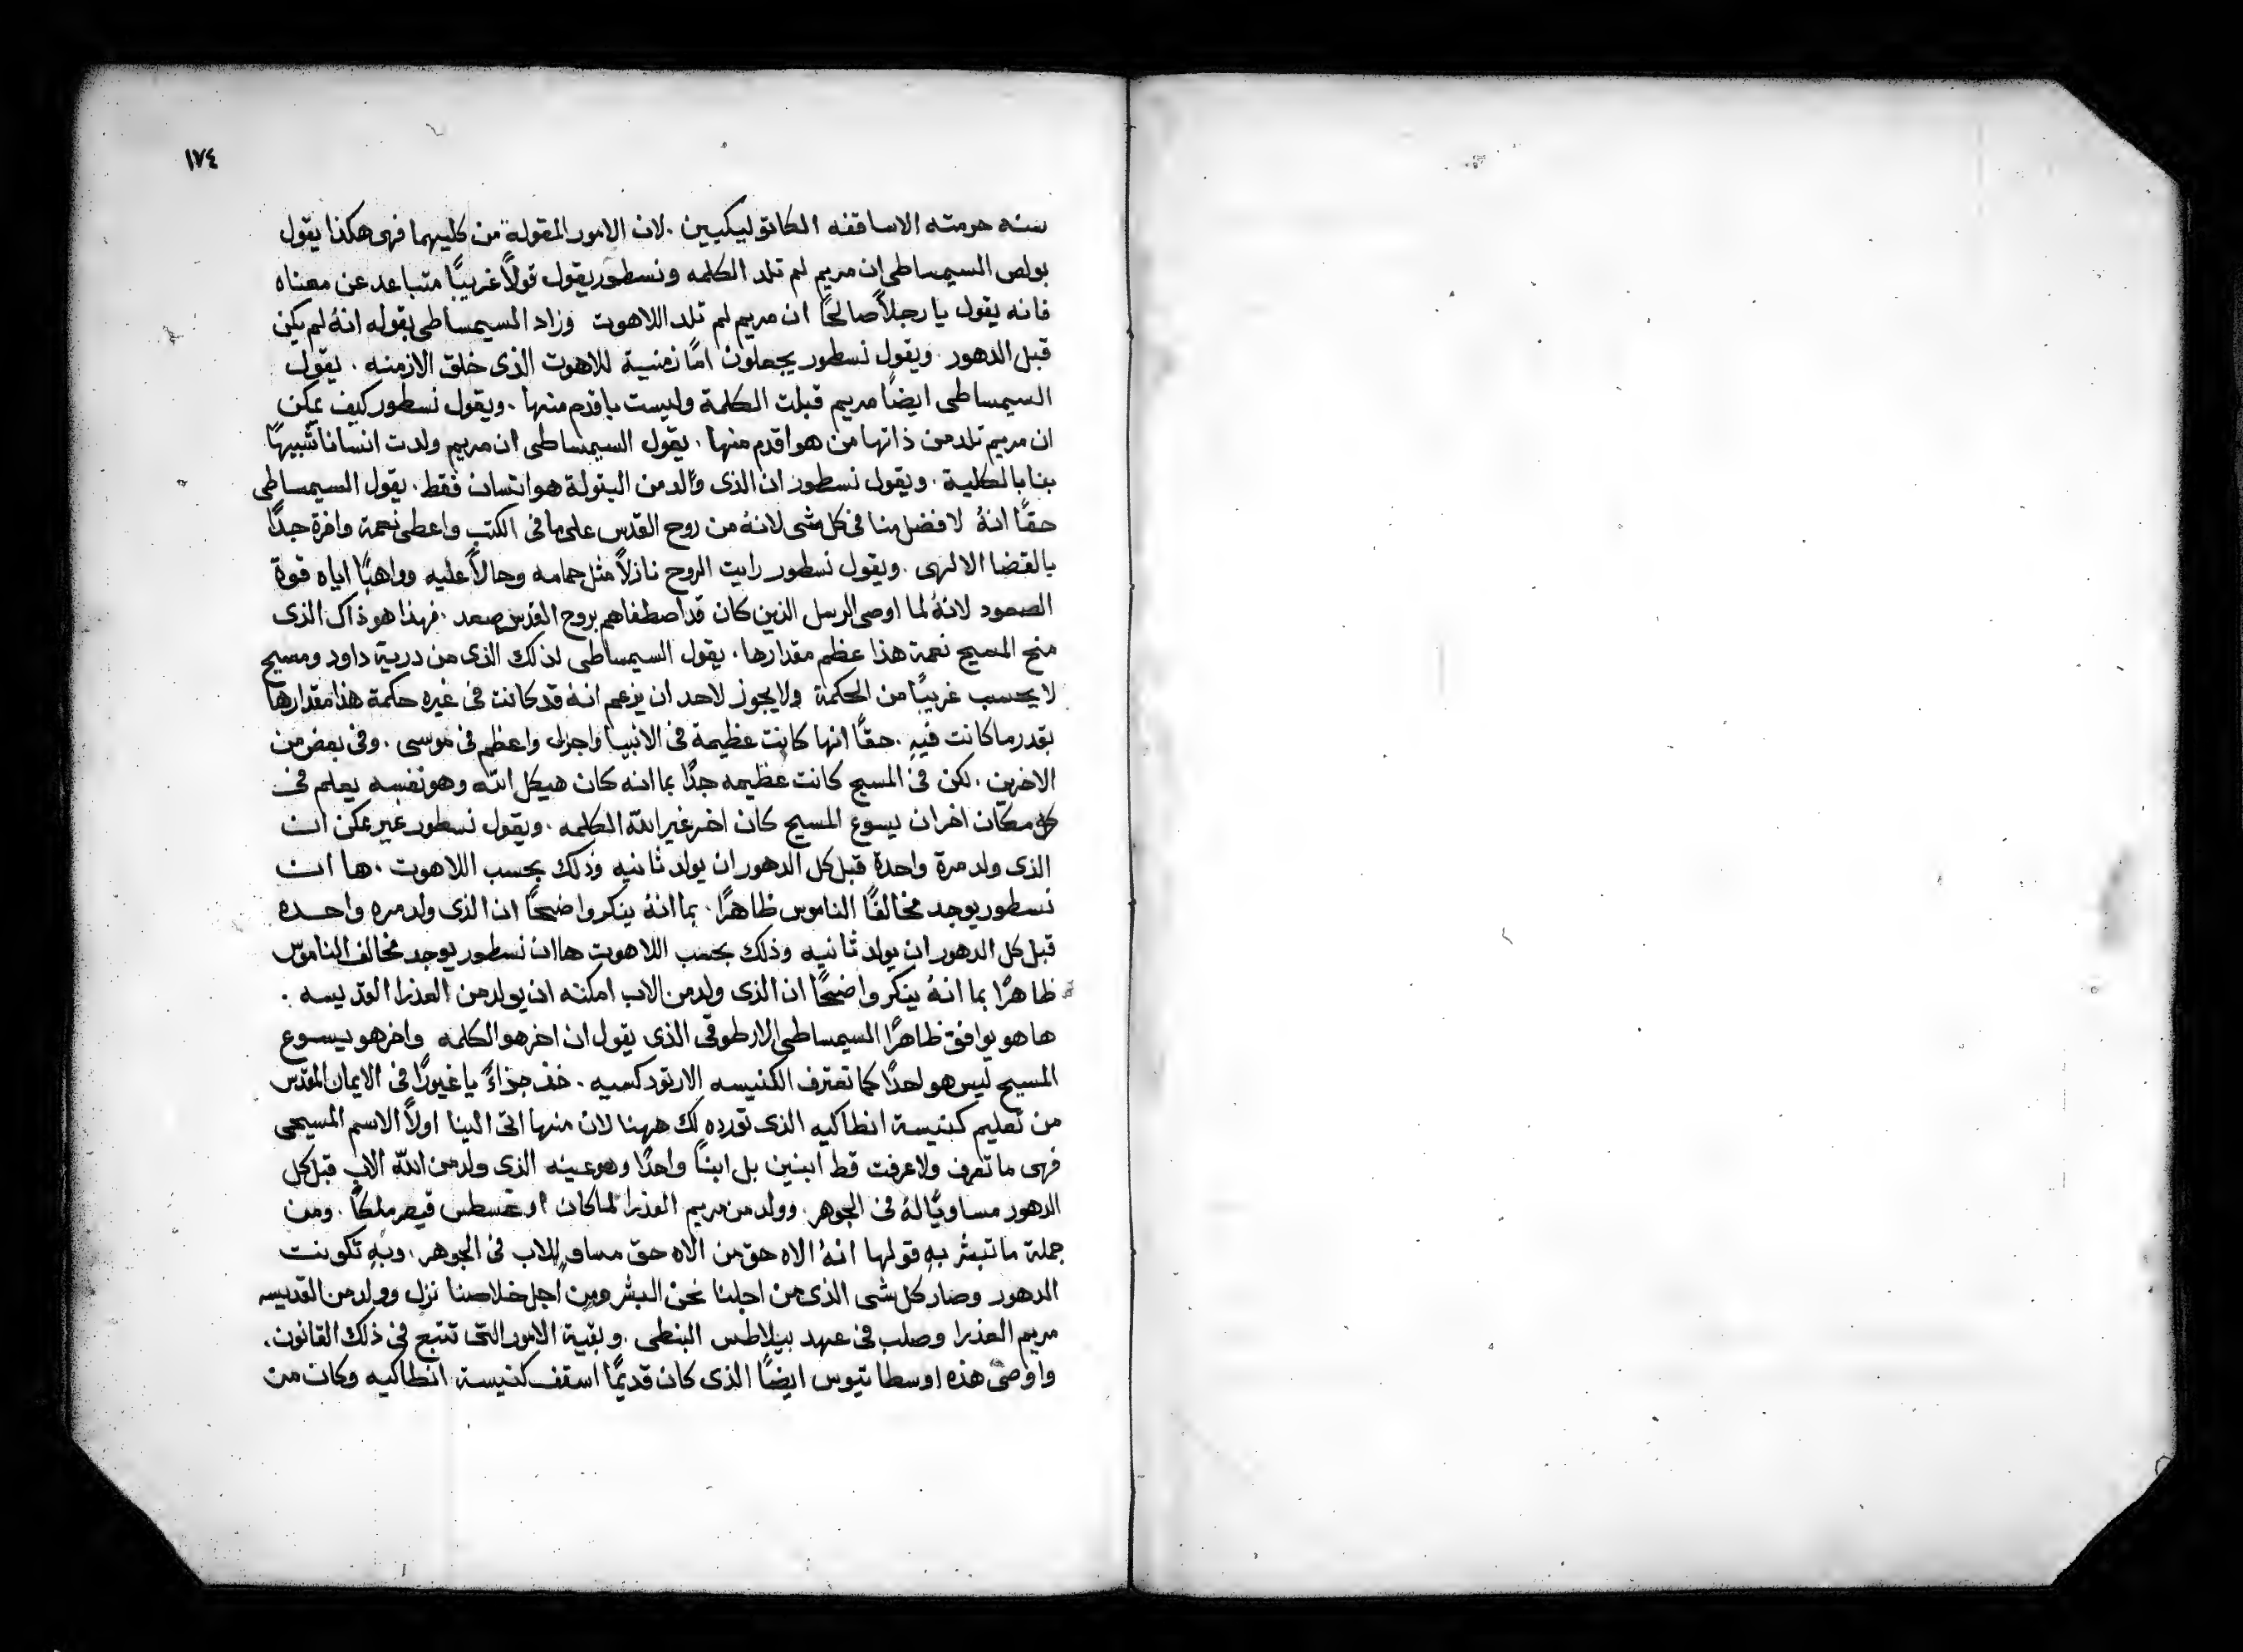 ١٧٤
سنه حرمته الاساقفه الكاتوليكيين . لان الامور المقولة من كليهما فهى هكذا يقول
بولص السيمساطى ان مريم لم تلد الكلمه ونسطور يقول قولاً غريبًا متباعد عن معناه
فانه يقول يا رجلاً صالحًا ان مريم لم تلد اللاهوت وزاد السيمساطى بقوله انهُ لم يكن
قبل الدهور . ويقول نسطور يجعلون امًا زمنية للاهوت الذى خلق الازمنه . يقول
السيمساطى ايضًا مريم قبلت الكلمة وليست باقدم منها . ويقول نسطور كيف يمكن
ان مريم تلد من ذاتها من هو اقدم منها . يقول السيمساطى ان مريم ولدت انسانا شبيهًا
بنا بالكلية . ويقول نسطور ان الذى ولد من البتولة هو انسان فقط . يقول السيمساطى
حقًا انهُ لافضل منا فى كل شى لانهُ من روح القدس على ما فى الكتب واعطى نعمة وافرة جدًا
بالقضا الالهى . ويقول نسطور رايت الروح نازلاً مثل حمامه وحالاً عليه وواهبًا اياه قوة
الصعود لانهُ لما اوصى الرسل الذين كان قد اصطفاهم بروح القدس صعد . فهذا هو ذاك الذى
منح المسيح نعمة هذا عظم مقدارها . يقول السيمساطى لذلك الذى من درية داود ومسيح
لا يحسب غريبًا من الحكمة ولا يجوز لاحد ان يزعم انهُ قد كانت فى غيره حكمة هذا مقدارها
بقدر ما كانت فيهِ . حقًا انها كانت عظيمة فى الانبيا واجزل واعظم فى موسى . وفى بعض من
الاخرين . لكن فى المسيح كانت عظيمه جدًا بما انه كان هيكل الله وهو نفسه يعلم فى
كل مكان اخر ان يسوع المسيح كان اخر غير الله الكلمه . ويقول نسطور غير ممكن ان
الذى ولد مرة واحدة قبل كل الدهور ان يولد ثانيه وذلك بحسب اللاهوت . ها ان
نسطور يوجد مخالفًا الناموس ظاهرًا . بما انهُ ينكر واضحًا ان الذى ولد مره واحده
قبل كل الدهور ان يولد ثانيه وذلك بحسب اللاهوت ها ان نسطور يوجد مخالف الناموس
ظاهرًا بما انهُ ينكر واضحًا ان الذى ولد من الاب امكنه ان يولد من العذرا القديسه .
ها هو يوافق ظاهرًا السيمساطى الارطوقى الذى يقول ان اخر هو الكلمه واخر هو يسوع
المسيح ليس هو احدًا كما تعترف الكنيسه الارتودكسيه . خف جذاءً يا غيورًا فى الايمان المقدس
من تعليم كنيسة انطاكيه الذى تورده لك ههنا لان منها اتى الينا اولاً الاسم المسيحى
فهى ما تعرف ولا عرفت قط ابنين بل ابنًا واحدًا وهو عينه الذى ولد من الله الاب قبل كل
الدهور مساويًا لهُ فى الجوهر . وولد من مريم العذرا لما كان اوغسطس قيصر ملكًا . ومن
جملة ما تبشر بهِ قولها انهُ الاه حق من الاه حق مساوٍ للاب فى الجوهر . وبهِ تكونت
الدهور وصار كل شى الذى من اجلنا نحن البشر ومن اجل خلاصنا نزل وولد من القديسه
مريم العذرا وصلب فى عهد بيلاطس البنطى . وبقية الامور التى تتبع فى ذلك القانون .
واوصى هذه اوسطاتيوس ايضًا الذى كان قديمًا اسقف كنيسة انطاكيه وكان من